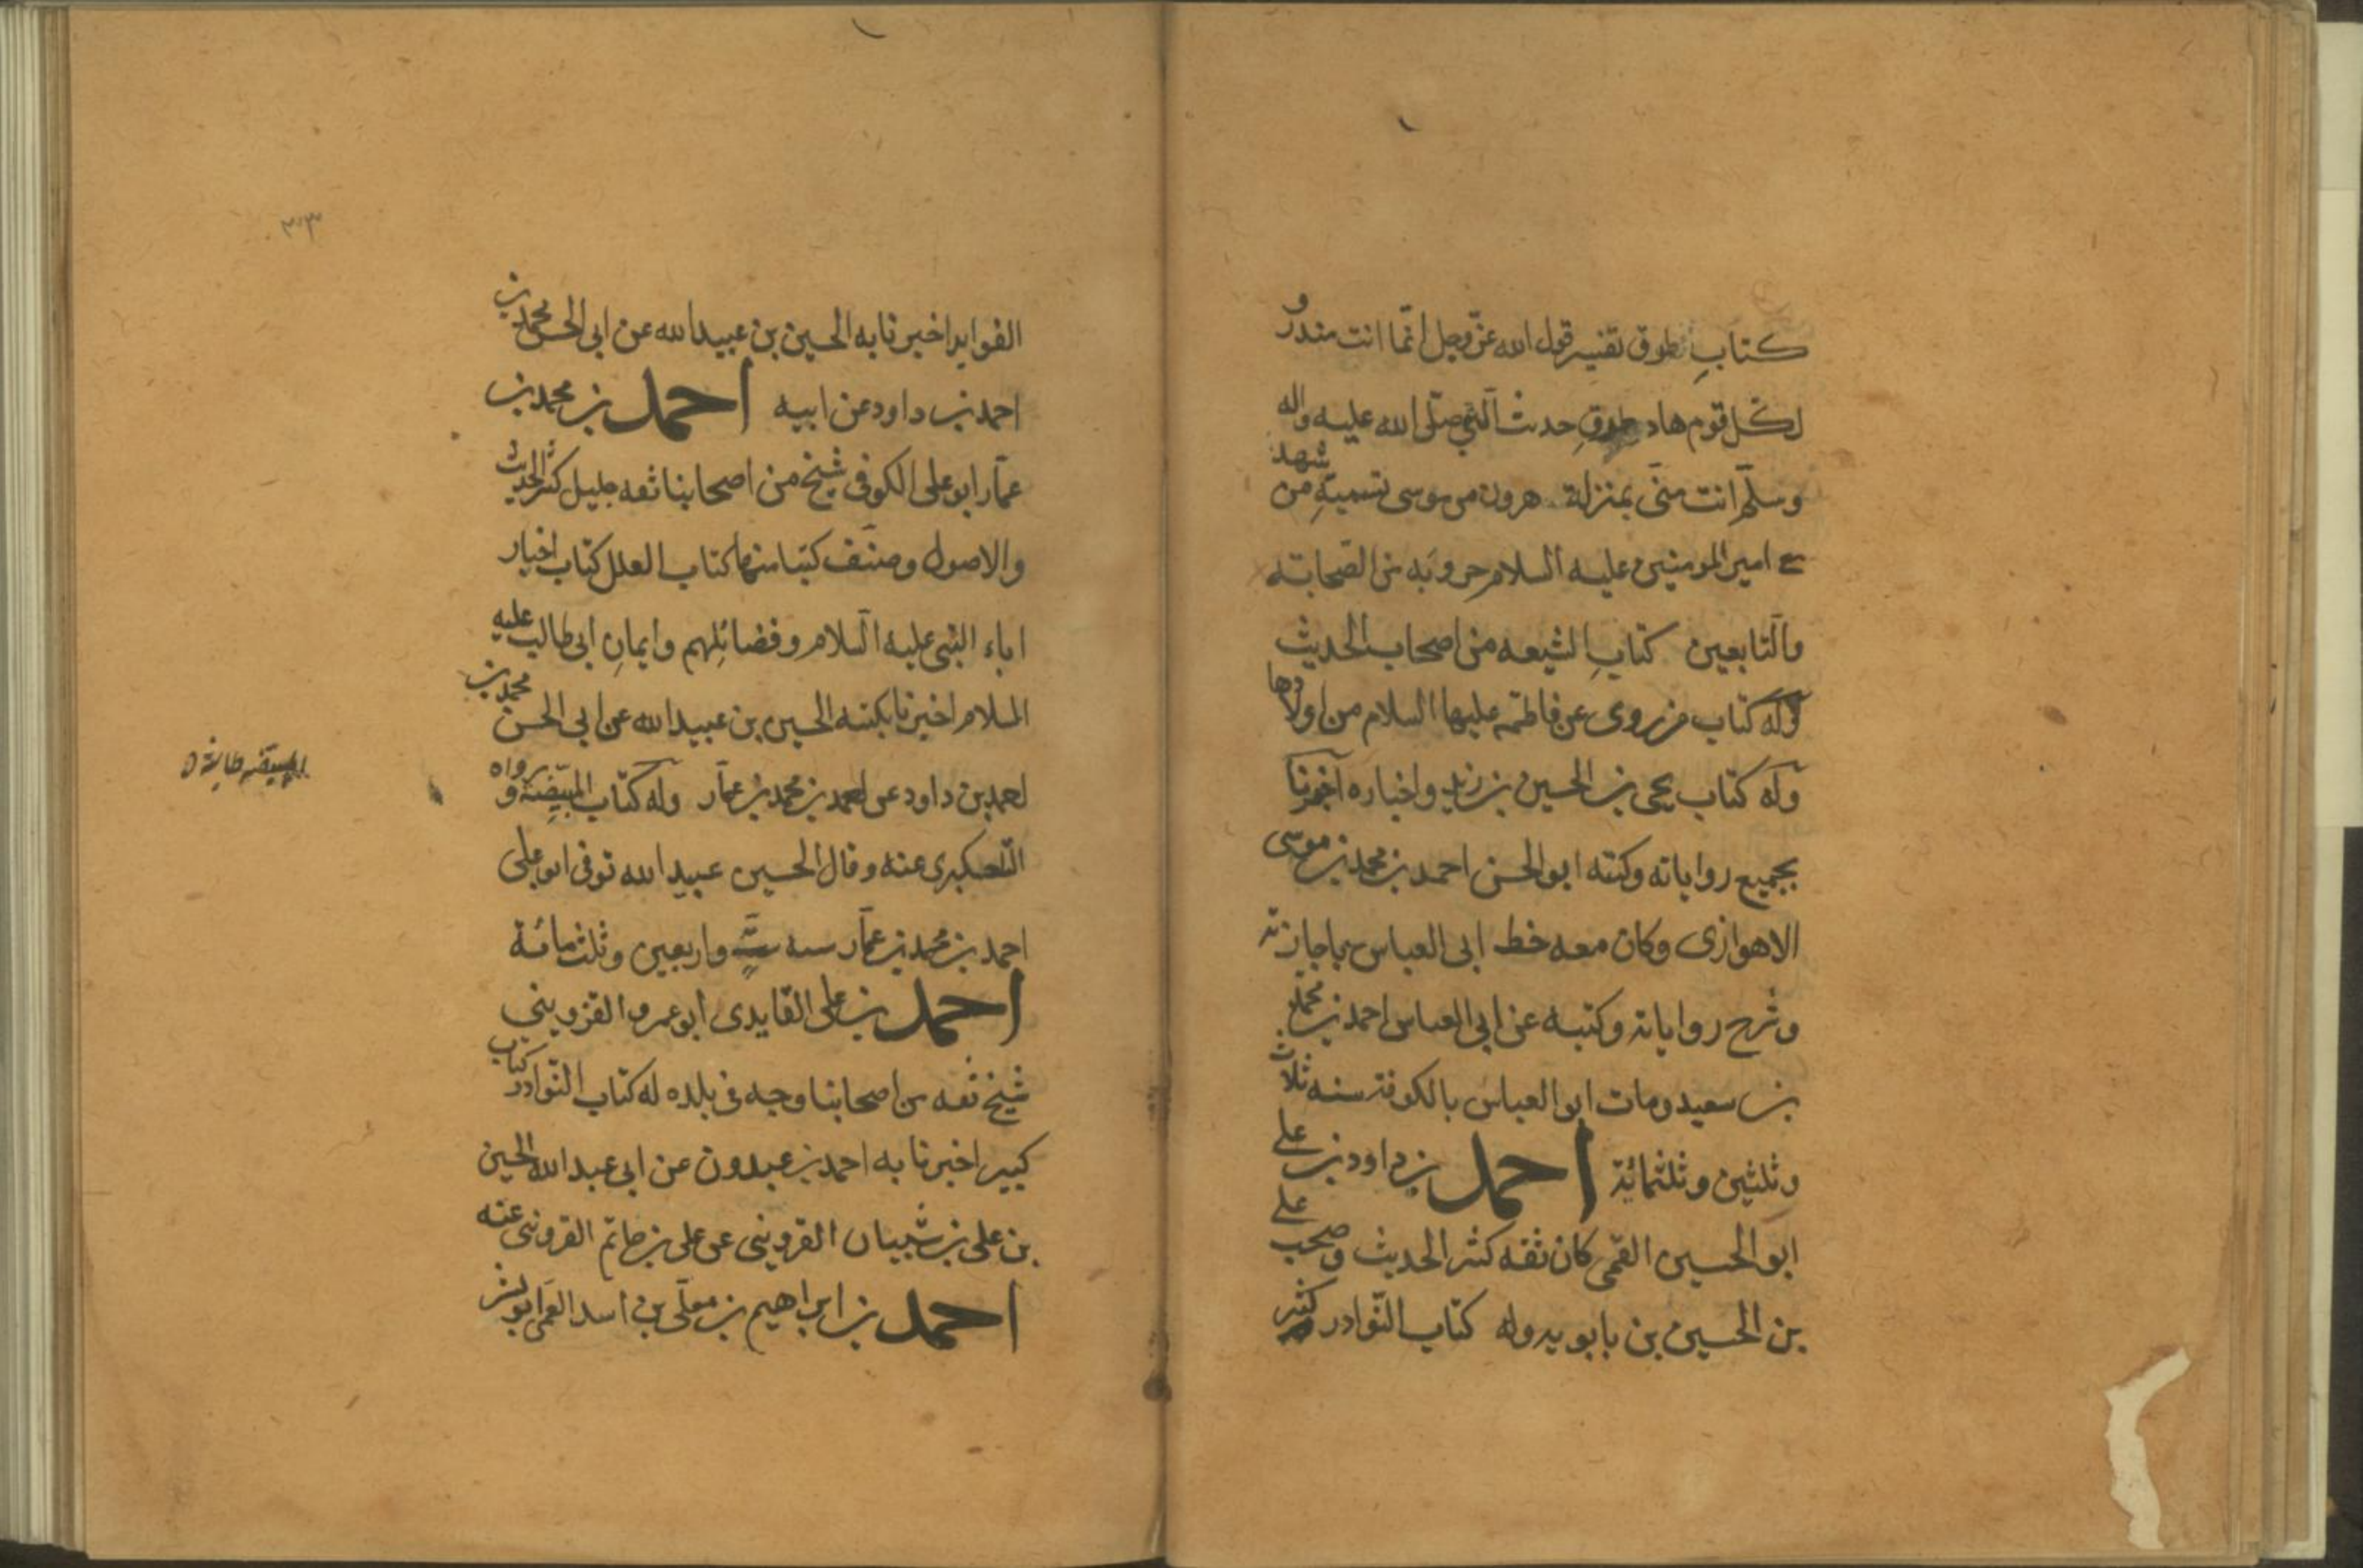 كتاب طرق تفسير قول الله عز وجل انما انت منذر و
لكل قوم هاد طرق حديث النبي صلى الله عليه واله
وسلم انت مني بمنزلة هرون من موسى تسمية من شهد
مع امير المومنين عليه السلام حروبه من الصحابة
والتابعين كتاب الشيعه من اصحاب الحديث
وله كتاب من روى عن فاطمه عليها السلام من اولادها
وله كتاب يحيى بن الحسين بن زيد واخباره اخبرنا
بجميع رواياته وكتبه ابو الحسن احمد بن محمد بن موسى
الاهوازى وكان معه خط ابى العباس باجازته
وشرح رواياته وكتبه عن ابى العباس احمد بن محمد
بن سعيد ومات ابو العباس بالكوفة سنه ثلاث
وثلثين وثلثمائة احمد بن داود بن على
ابو الحسين القمى كان ثقه كثير الحديث وصحب على
بن الحسين بن بابويه وله كتاب النوادر كثير
٣٠٣
الفوايد اخبرنا به الحسين بن عبيدالله عن ابى الحسن محمد بن
احمد بن داود عن ابيه احمد بن محمد بن
عمار ابو على الكوفى شيخ من اصحابنا ثقه جليل كثير الحديث
والاصول وصنف كتبا منها كتاب العلل كتاب اخبار
اباء النبى عليه السلام وفضائلهم وايمان ابى طالب عليه
السلام اخبرنا بكتبه الحسين بن عبيدالله عن ابى الحسن محمد بن
احمد بن داود عن احمد بن محمد بن عمار وله كتاب المبيضة و رواه
التلعكبرى عنه وقال الحسين عبيدالله توفى ابو على
احمد بن محمد بن عمار سنه ست واربعين وثلثمائة
احمد بن على الفايدى ابو عمرو القزوينى
شيخ ثقه من اصحابنا وجه فى بلده له كتاب النوادر كتاب
كبير اخبرنا به احمد بن عبدون عن ابى عبدالله الحسين
بن على بن شيبان القزوينى عن على بن حاتم القزوينى عنه
احمد بن ابراهيم بن معلى بن اسد العمى ابو بشر